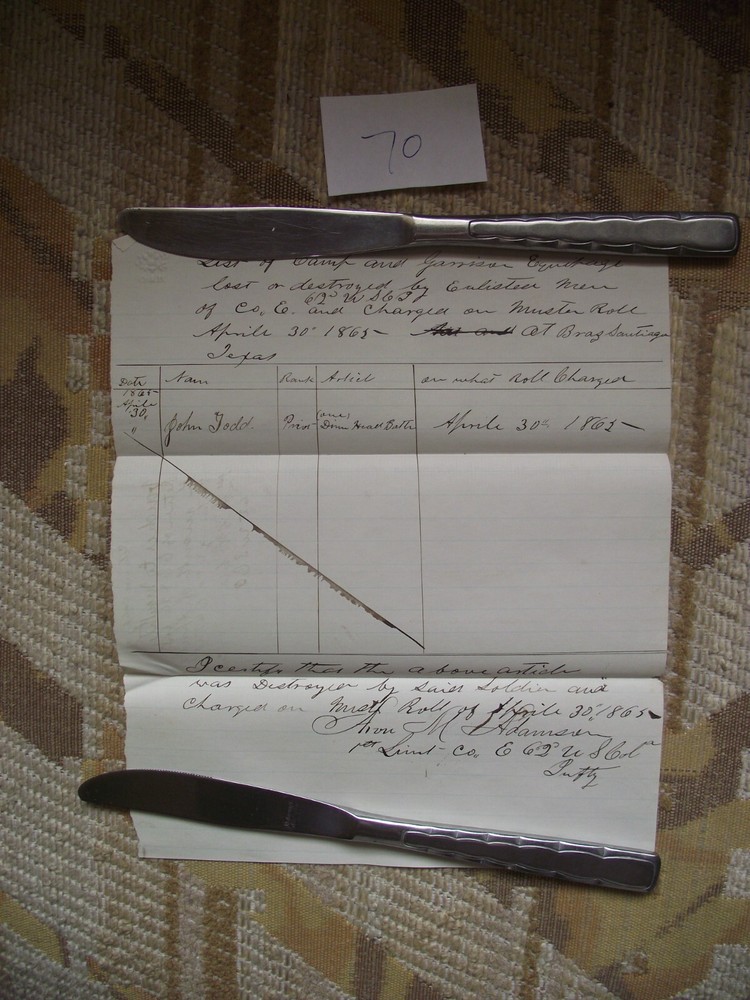 70
List of Camp and Garrison Equipage
lost or destroyed by Enlisted Men
62d U S C I
of Co. E. and Charged on Muster Roll
Aprile 30" 1865 At Braz Santiago
Texas
Date Nam Rank Articl on what Roll Charged
1865
Aprile
30, (one)
" John Todd. Privt Drum Head Batter Aprile 30th 1865
I certify that the above article
was Destroyed by said Soldier and
Charged on Must Roll of Aprile 30", 1865
M Adamson
1st Lieut Co, E 62d U S Cold